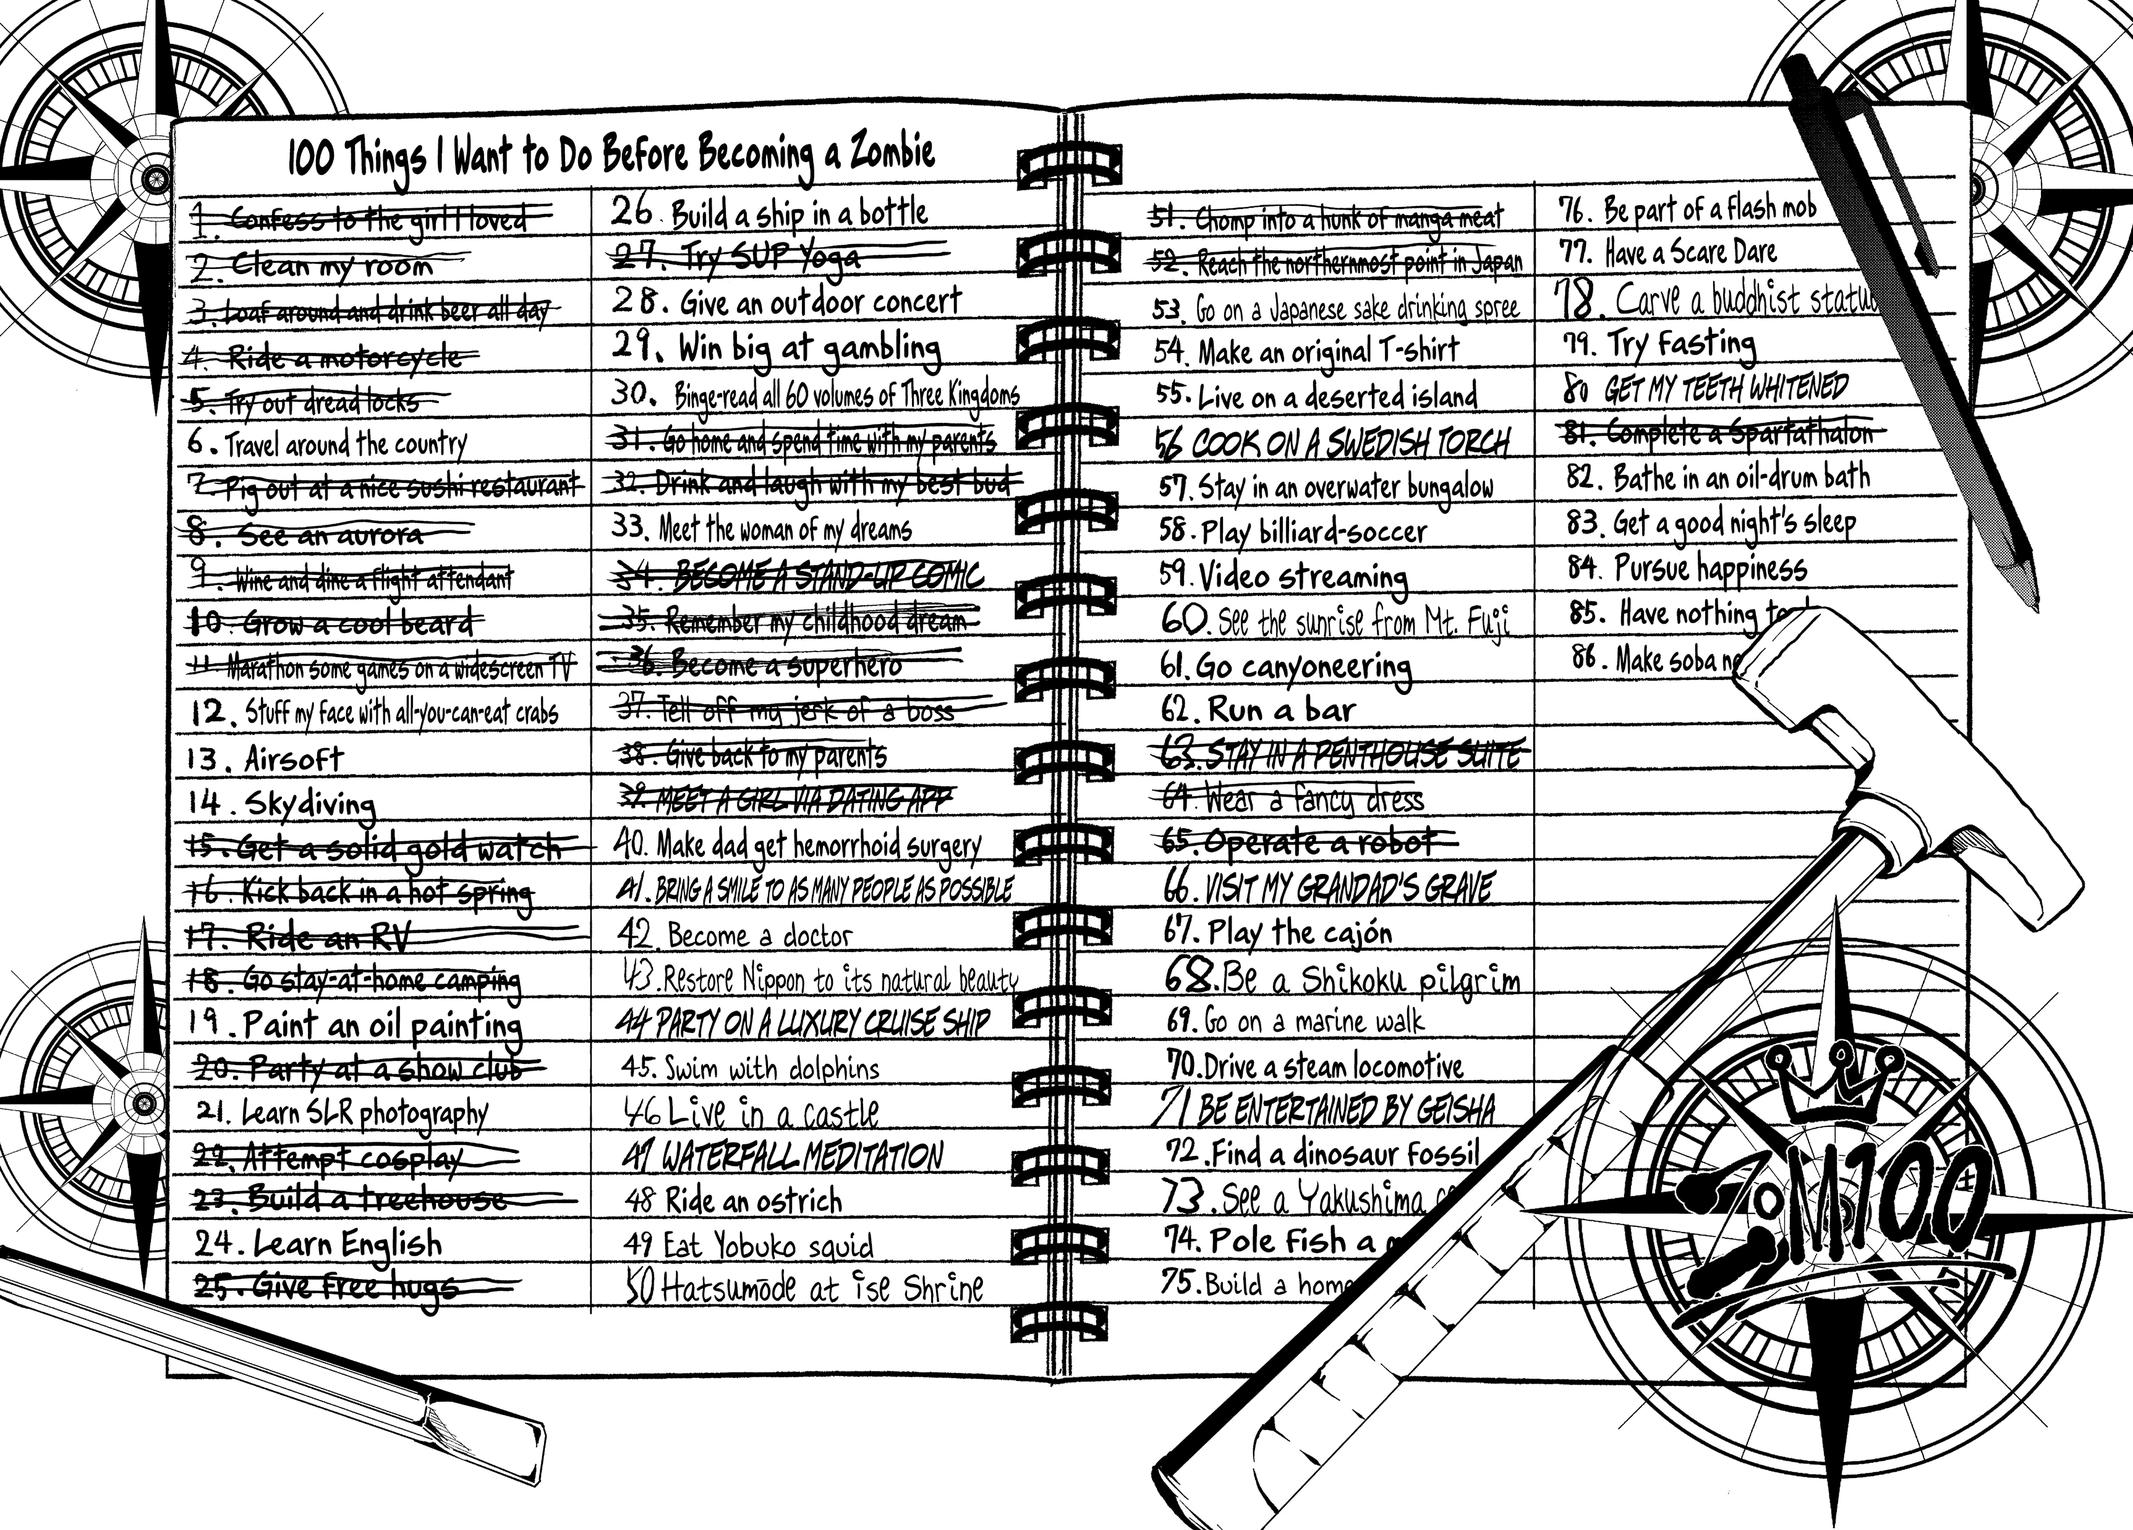 100 Things I Want to Do Before Becoming a Zombie
1. Confess to the girl I loved
2. Clean my room
3. Loaf around and drink beer all day
4. Ride a motorcycle
5. Try out dreadlocks
6. Travel around the country
7. Pig out at a nice sushi restaurant
8. See an aurora
9. Wine and dine a flight attendant
10. Grow a cool beard
11 Marathon some games on a widescreen TV
12. Stuff my face with all-you-can-eat crabs
13. Airsoft
14. Skydiving
15. Get a solid gold watch
16. Kick back in a hot spring
17. Ride an RV
18. Go stay-at-home camping
19. Paint an oil painting
20. Party at a show club
21. Learn SLR photography
22. Attempt cosplay
23. Build a treehouse
24. Learn English
25. Give free hugs
26. Build a ship in a bottle
27. Try SUP Yoga
28. Give an outdoor concert
29. Win big at gambling
30. Binge-read all 60 volumes of Three Kingdoms
31. Go home and spend time with my parents
32. Drink and laugh with my best bud
33. Meet the woman of my dreams
34. BECOME A STAND-UP COMIC
35. Remember my childhood dream
36. Become a superhero
37. Tell off my jerk of a boss
38. Give back to my parents
39. MEET A GIRL VIA DATING APP
40. Make dad get hemorrhoid surgery
41. BRING A SMILE TO AS MANY PEOPLE AS POSSIBLE
42. Become a doctor
43. Restore Nippon to its natural beauty
44 PARTY ON A LUXURY CRUISE SHIP
45. Swim with dolphins
46 Live in a castle
47 WATERFALL MEDITATION
48 Ride an ostrich
49 Eat Yobuko squid
50 Hatsumōde at ise Shrine
51. Chomp into a hunk of manga meat
52. Reach the northernmost point in Japan
53. Go on a Japanese sake drinking spree
54. Make an original T-shirt
55. Live on a deserted island
56 COOK ON A SWEDISH TORCH
57. Stay in an overwater bungalow
58. Play billiard-soccer
59. Video streaming
60. See the sunrise from Mt. Fuji
61. Go canyoneering
62. Run a bar
63. STAY IN A PENTHOUSE SUITE
64. Wear a fancy dress
65. Operate a robot
66. VISIT MY GRANDAD'S GRAVE
67. Play the cajón
68. Be a Shikoku pilgrim
69. Go on a marine walk
70. Drive a steam locomotive
71 BE ENTERTAINED BY GEISHA
72. Find a dinosaur fossil
73. See a Yakushima
74. Pole fish a
75. Build a home
76. Be part of a flash mob
77. Have a Scare Dare
78. Carve a buddhist statu
79. Try fasting
80 GET MY TEETH WHITENED
81. Complete a Spartathalon
82. Bathe in an oil-drum bath
83. Get a good night's sleep
84. Pursue happiness
85. Have nothing
86. Make soba
ZOM100